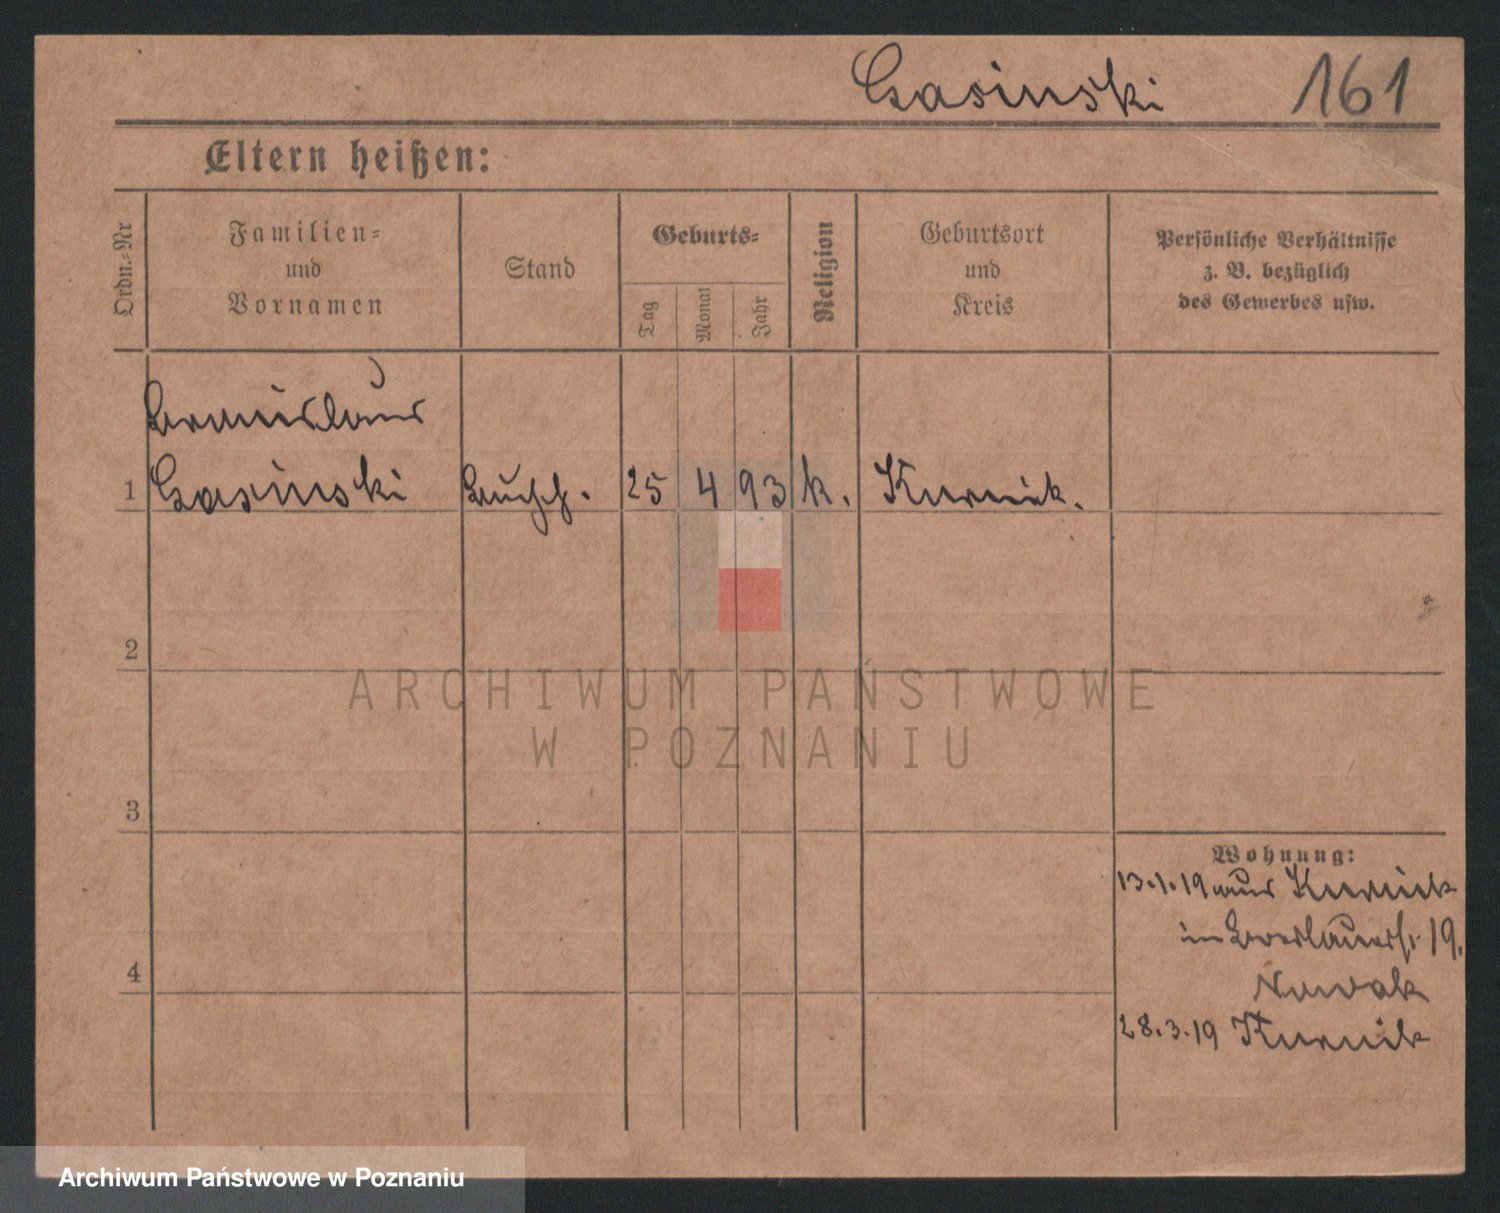 Gasinski 161
Eltern heißen:
Ordn.-Nr
Familien-
und
Vornamen
Stand
Geburts-
Tag
Monat
Jahr
Religion
Geburtsort
und
Kreis
Persönliche Verhältnisse
z. B. bezüglich
des Gewerbes usw.
Bronislaus
1 Gasinski 25 4 93 k. Kurnik.
2
ARCHIWUM PAŃSTWOWE
W POZNANIU
3
Wohnung:
13.1.19 aus Kurnik
im 19.
4
Nowak
28.3.19 Kurnik
Archiwum Państwowe w Poznaniu